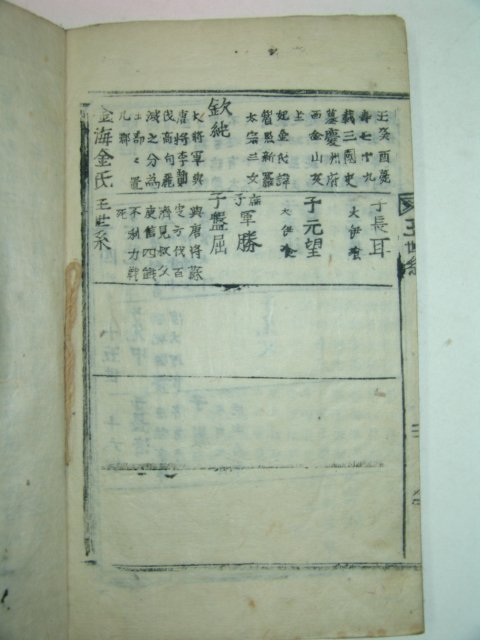 王世系
癸酉薨
壽七十九
載三國史
墓慶州府
西金山
上
妃金氏諱
照新羅
太宗三女
欽純
大將軍與
唐將李
伐高句麗
滅之分為
都々置
九郡
金海金氏王世系
子長耳
大伊飡
子元望
大伊飡
庶子軍勝
子盤屈
與唐將蘇
定方伐百
濟見叔父
庾信四
不利力戰
死